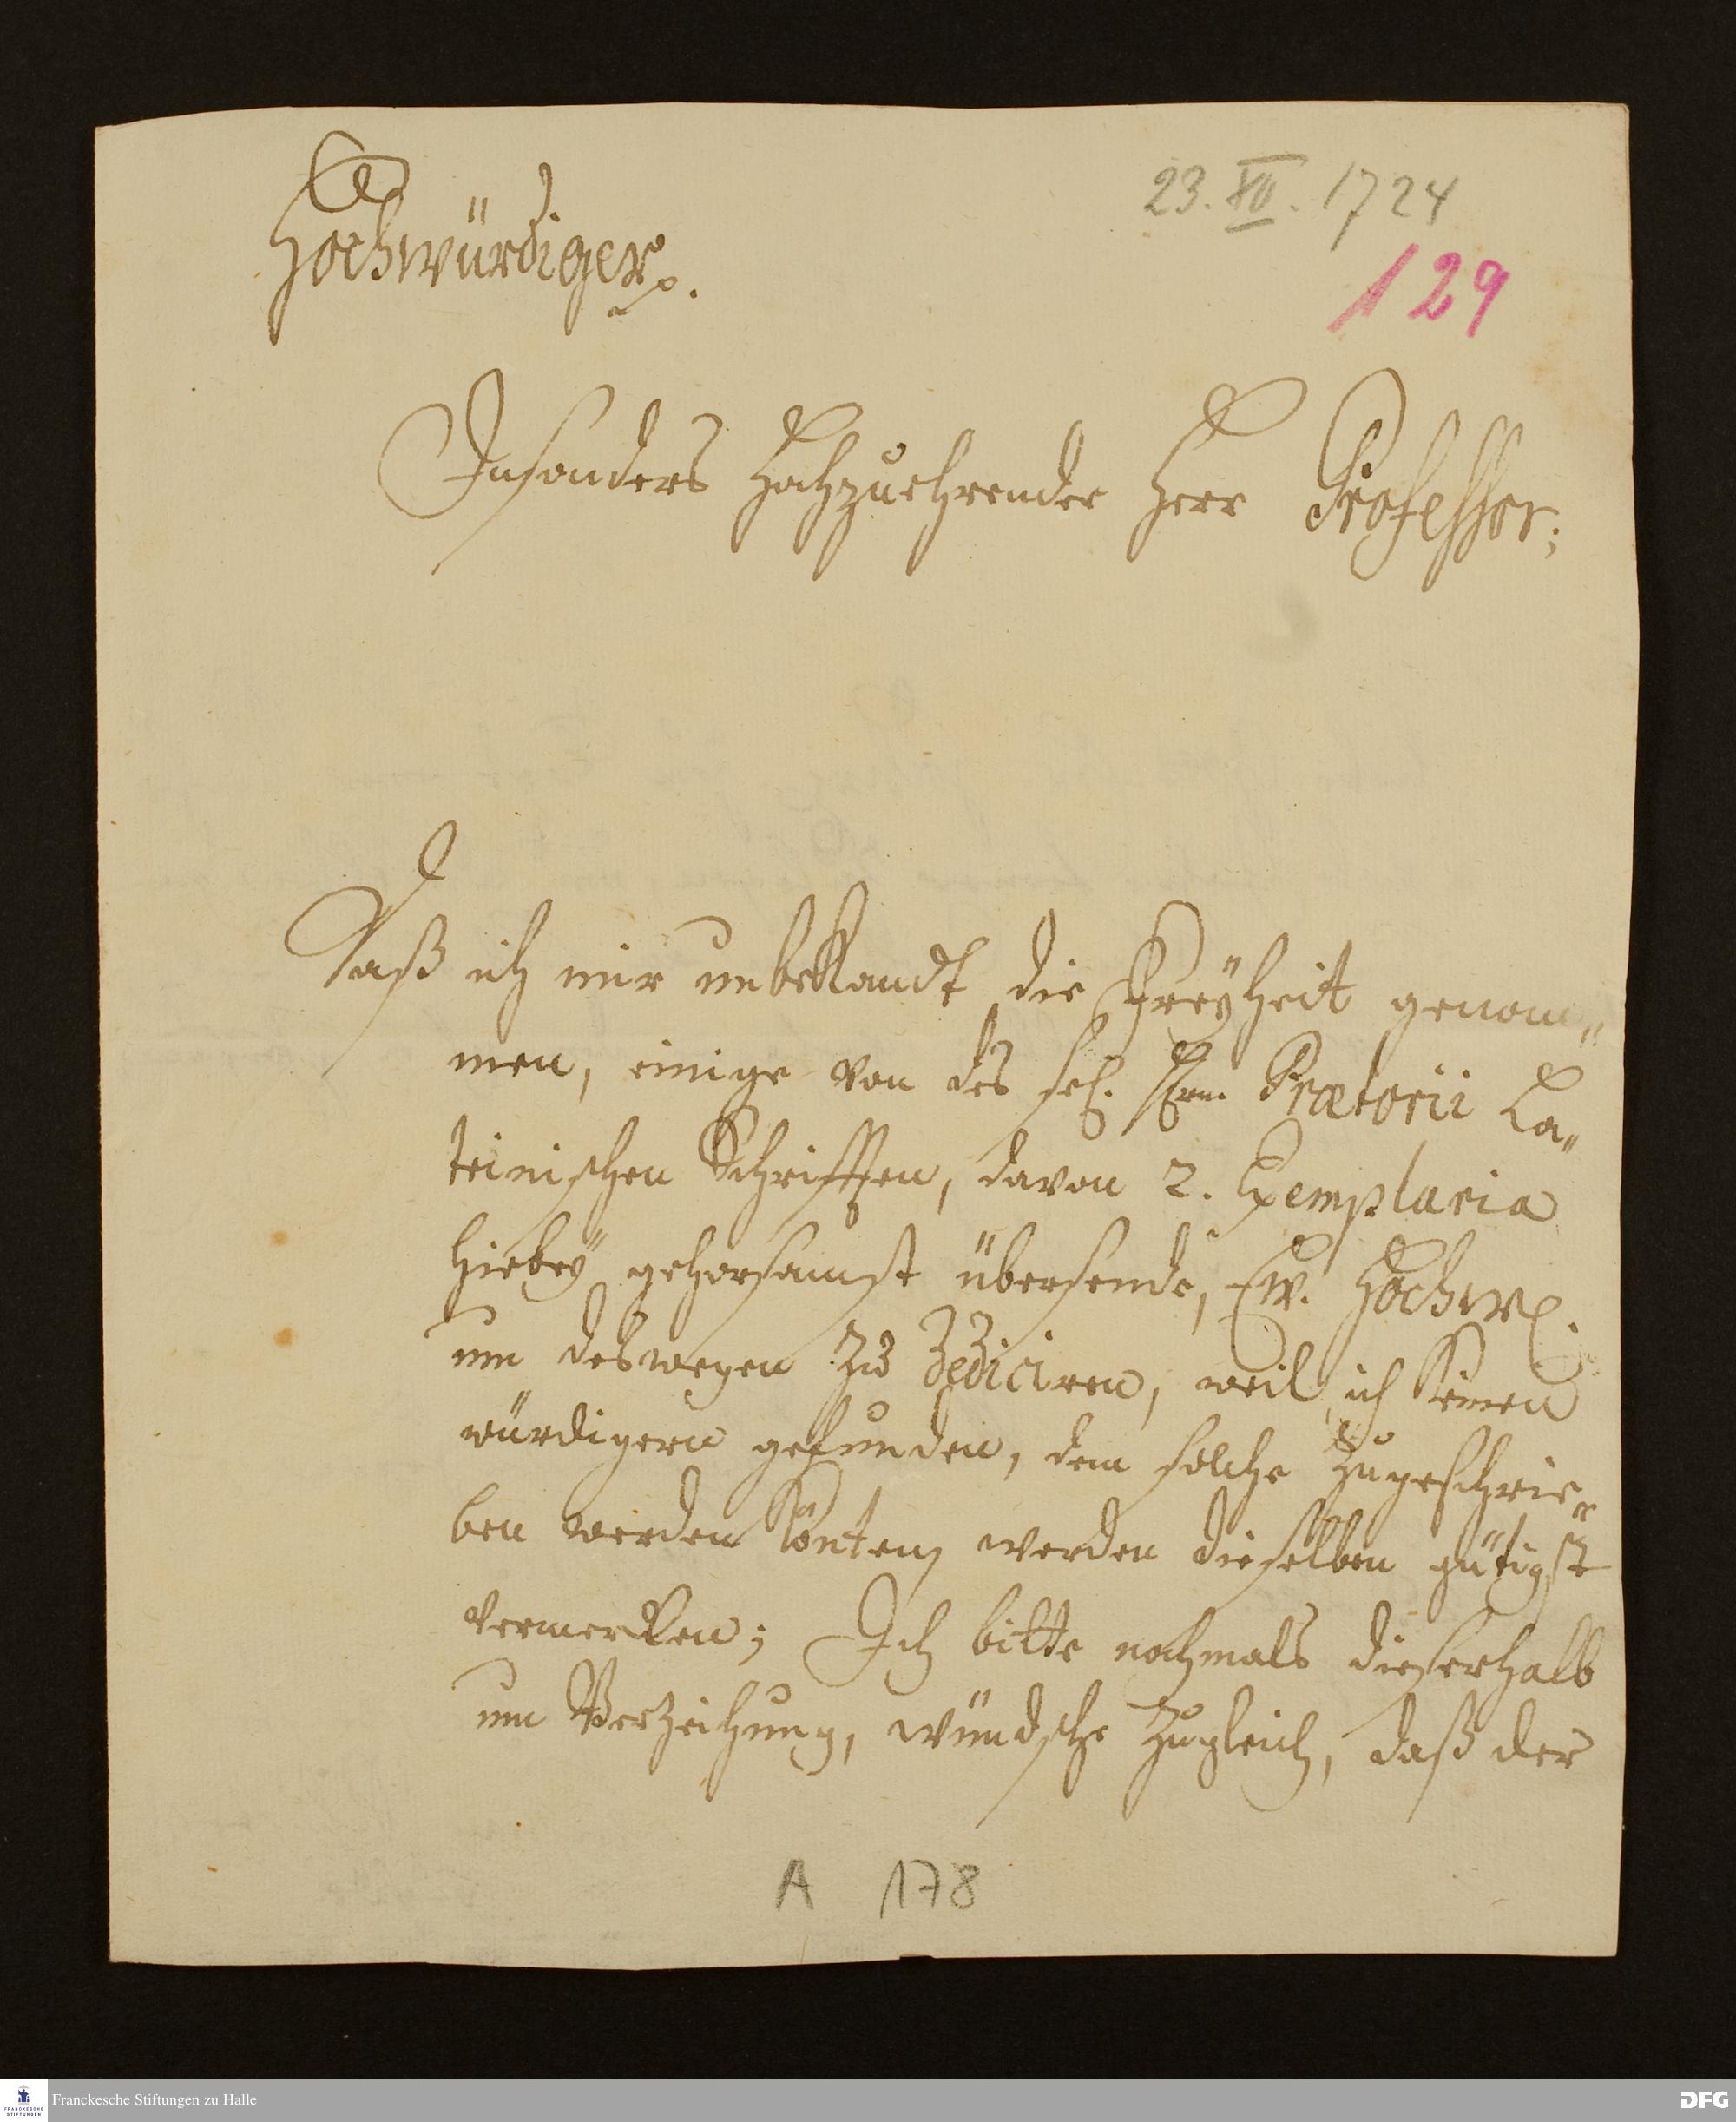 23. XII. 1724
129
Hochwürdiger p.
Insonders Hochzuehrender Herr Professor;
Daß ich mir unbekandt die Freÿheit genom„
men, einige von des sel. Hrn. Prætorii La„
teinischen Schrifften, davon 2. Exemplaria
hiebeÿ gehorsamst übersende, Ew. Hochw.
um deswegen zu dediciren, weil ich keinen
würdigern gefunden, dem solche zugeschrie„
ben werden könten, werden dieselben gütigst
vermerken; Ich bitte nochmals dieserhalb
um Verzeihung, wündsche zugleich, daß der
A 178
Franckesche Stiftungen zu Halle
FRANCKESCHE
STIFTUNGEN
DFG